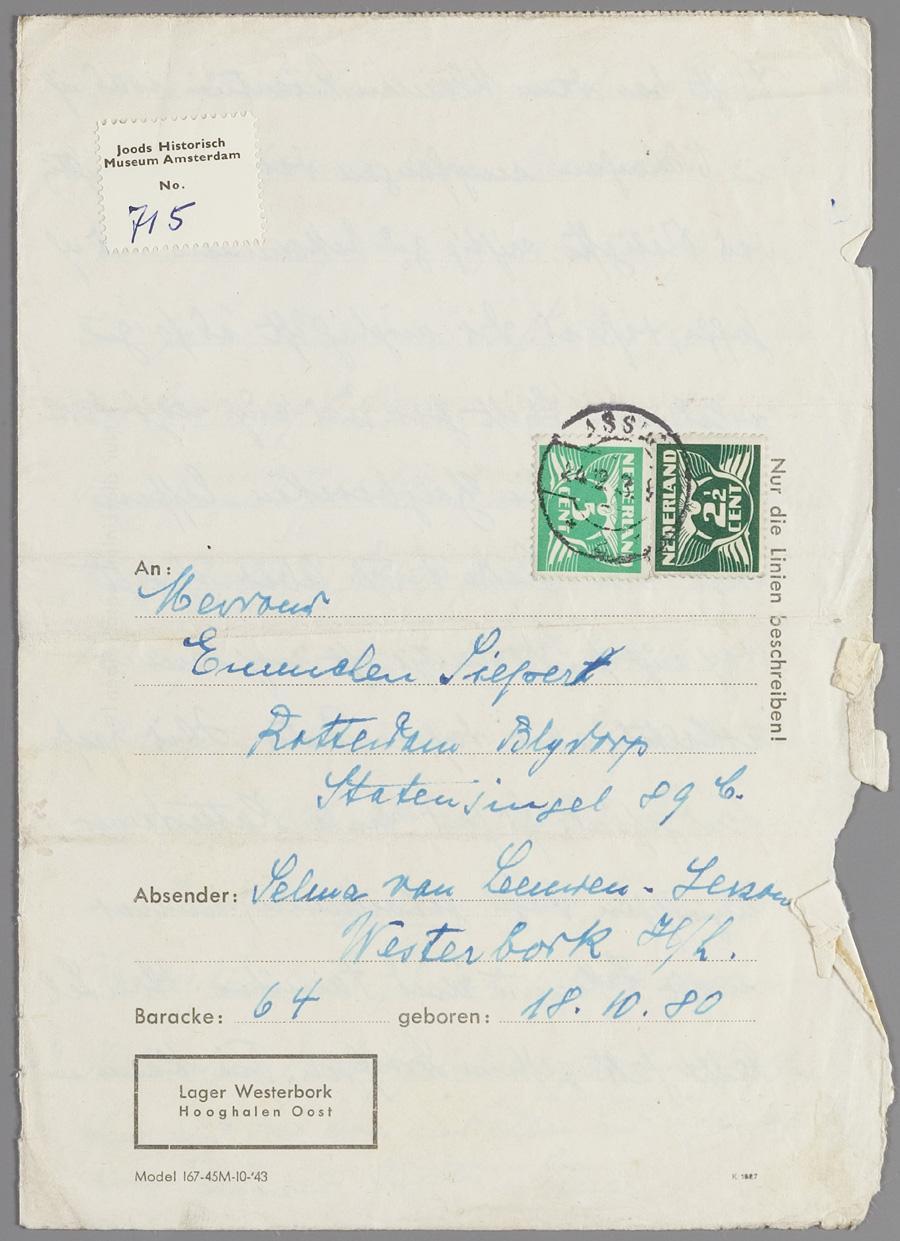 Joods Historisch
Museum Amsterdam
No.
715
ASS
NEDERLAND
5
CENT
NEDERLAND
2½
CENT
Nur die Linien beschreiben!
An:
Mevrouw
Emmchen Siepert
Rotterdam Blydorp
Statensingel 89 C.
Absender: Selma van Leeuwen-
Westerbork H/h.
Baracke: 64 geboren: 18. 10. 80
Lager Westerbork
Hooghalen Oost
Model 167-45M-10-'43